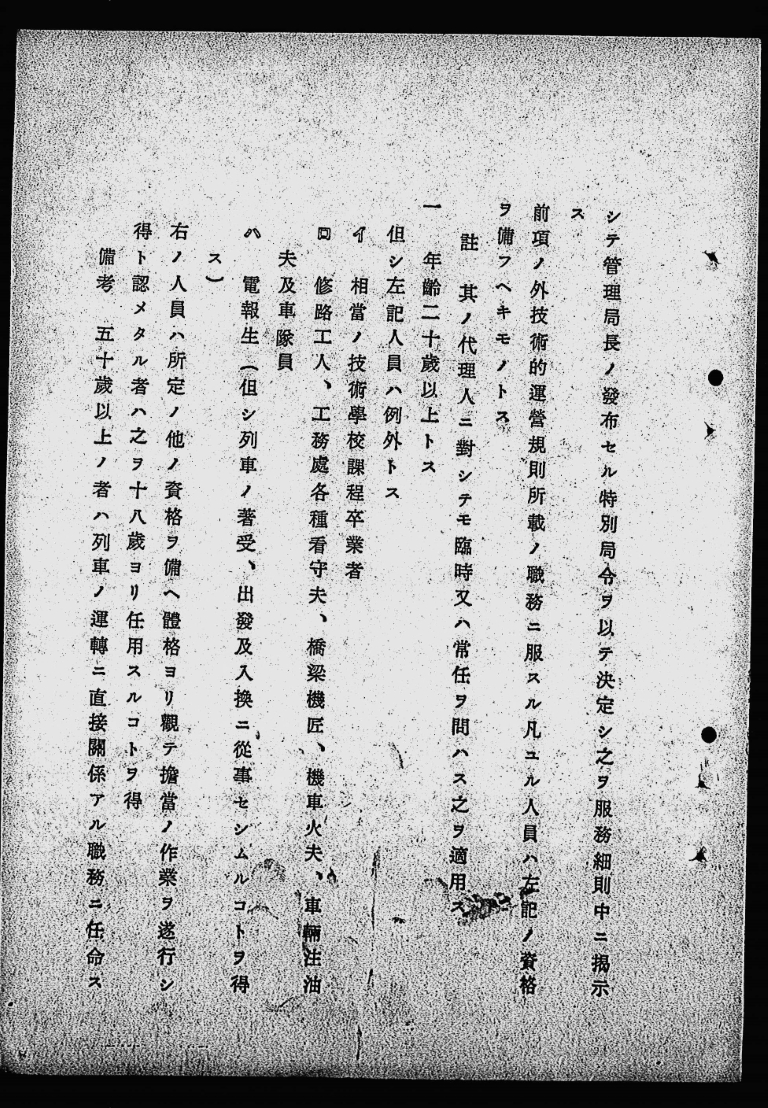 シテ管理局長ノ發布セル特別局令ヲ以テ決定シ之ヲ服務細則中ニ揭示
ス
前項ノ外技術的運營規則所載ノ職務ニ服スル凡ユル人員ハ左記ノ資格
ヲ備フヘキモノトス
註 其ノ代理人ニ對シテモ臨時又ハ常任ヲ問ハス之ヲ適用ス
一 年齡二十歲以上トス
但シ左記人員ハ例外トス
イ 相當ノ技術學校課程卒業者
ロ 修路工人、工務處各種看守夫、橋梁機匠、機車火夫、車輛注油
夫及車隊員
ハ 電報生(但シ列車ノ著受、出發及入換ニ從事セシムルコトヲ得
ス)
右ノ人員ハ所定ノ他ノ資格ヲ備ヘ體格ヨリ觀テ擔當ノ作業ヲ遂行シ
得ト認メタル者ハ之ヲ十八歲ヨリ任用スルコトヲ得
備考 五十歲以上ノ者ハ列車ノ運轉ニ直接關係アル職務ニ任命ス